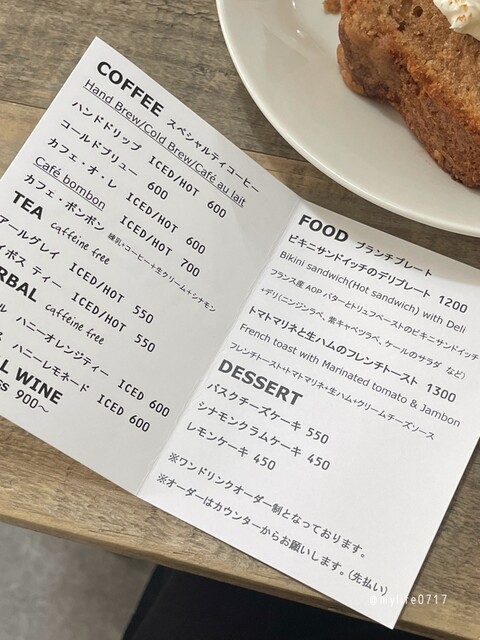 COFFEE スペシャルティコーヒー
Hand Brew/Cold Brew/Café au lait
ハンドドリップ ICED/HOT 600
コールドブリュー 600
カフェ・オ・レ ICED/HOT 600
Café bombon
カフェ・ボンボン ICED/HOT 700
練乳+コーヒー+生クリーム+シナモン
TEA caffeine free
アールグレイ ICED/HOT 550
イボス ティー ICED/HOT 550
RBAL caffeine free
ハニーオレンジティー ICED 600
ハニーレモネード ICED 600
L WINE
ss 900〜
FOOD ブランチプレート
ビキニサンドイッチのデリプレート 1200
Bikini sandwich(Hot sandwich) with Deli
フランス産 AOP バターとトリュフペーストのビキニサンドイッチ
+デリ(ニンジンラペ、紫キャベツラペ、ケールのサラダ など)
トマトマリネと生ハムのフレンチトースト 1300
French toast with Marinated tomato & Jambon
フレンチトースト+トマトマリネ+生ハム+クリームチーズソース
DESSERT
バスクチーズケーキ 550
シナモンクラムケーキ 450
レモンケーキ 450
※ワンドリンクオーダー制となっております。
※オーダーはカウンターからお願いします。(先払い)
@mylife0717